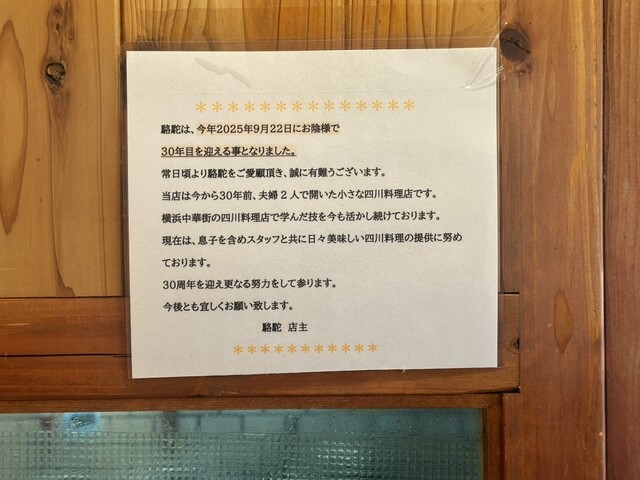 ＊＊＊＊＊＊＊＊＊＊＊＊＊＊
駱駝は、今年2025年9月22日にお陰様で
30年目を迎える事となりました。
常日頃より駱駝をご愛顧頂き、誠に有難うございます。
当店は今から30年前、夫婦２人で開いた小さな四川料理店です。
横浜中華街の四川料理店で学んだ技を今も活かし続けております。
現在は、息子を含めスタッフと共に日々美味しい四川料理の提供に努め
ております。
30周年を迎え更なる努力をして参ります。
今後とも宜しくお願い致します。
駱駝 店主
＊＊＊＊＊＊＊＊＊＊＊